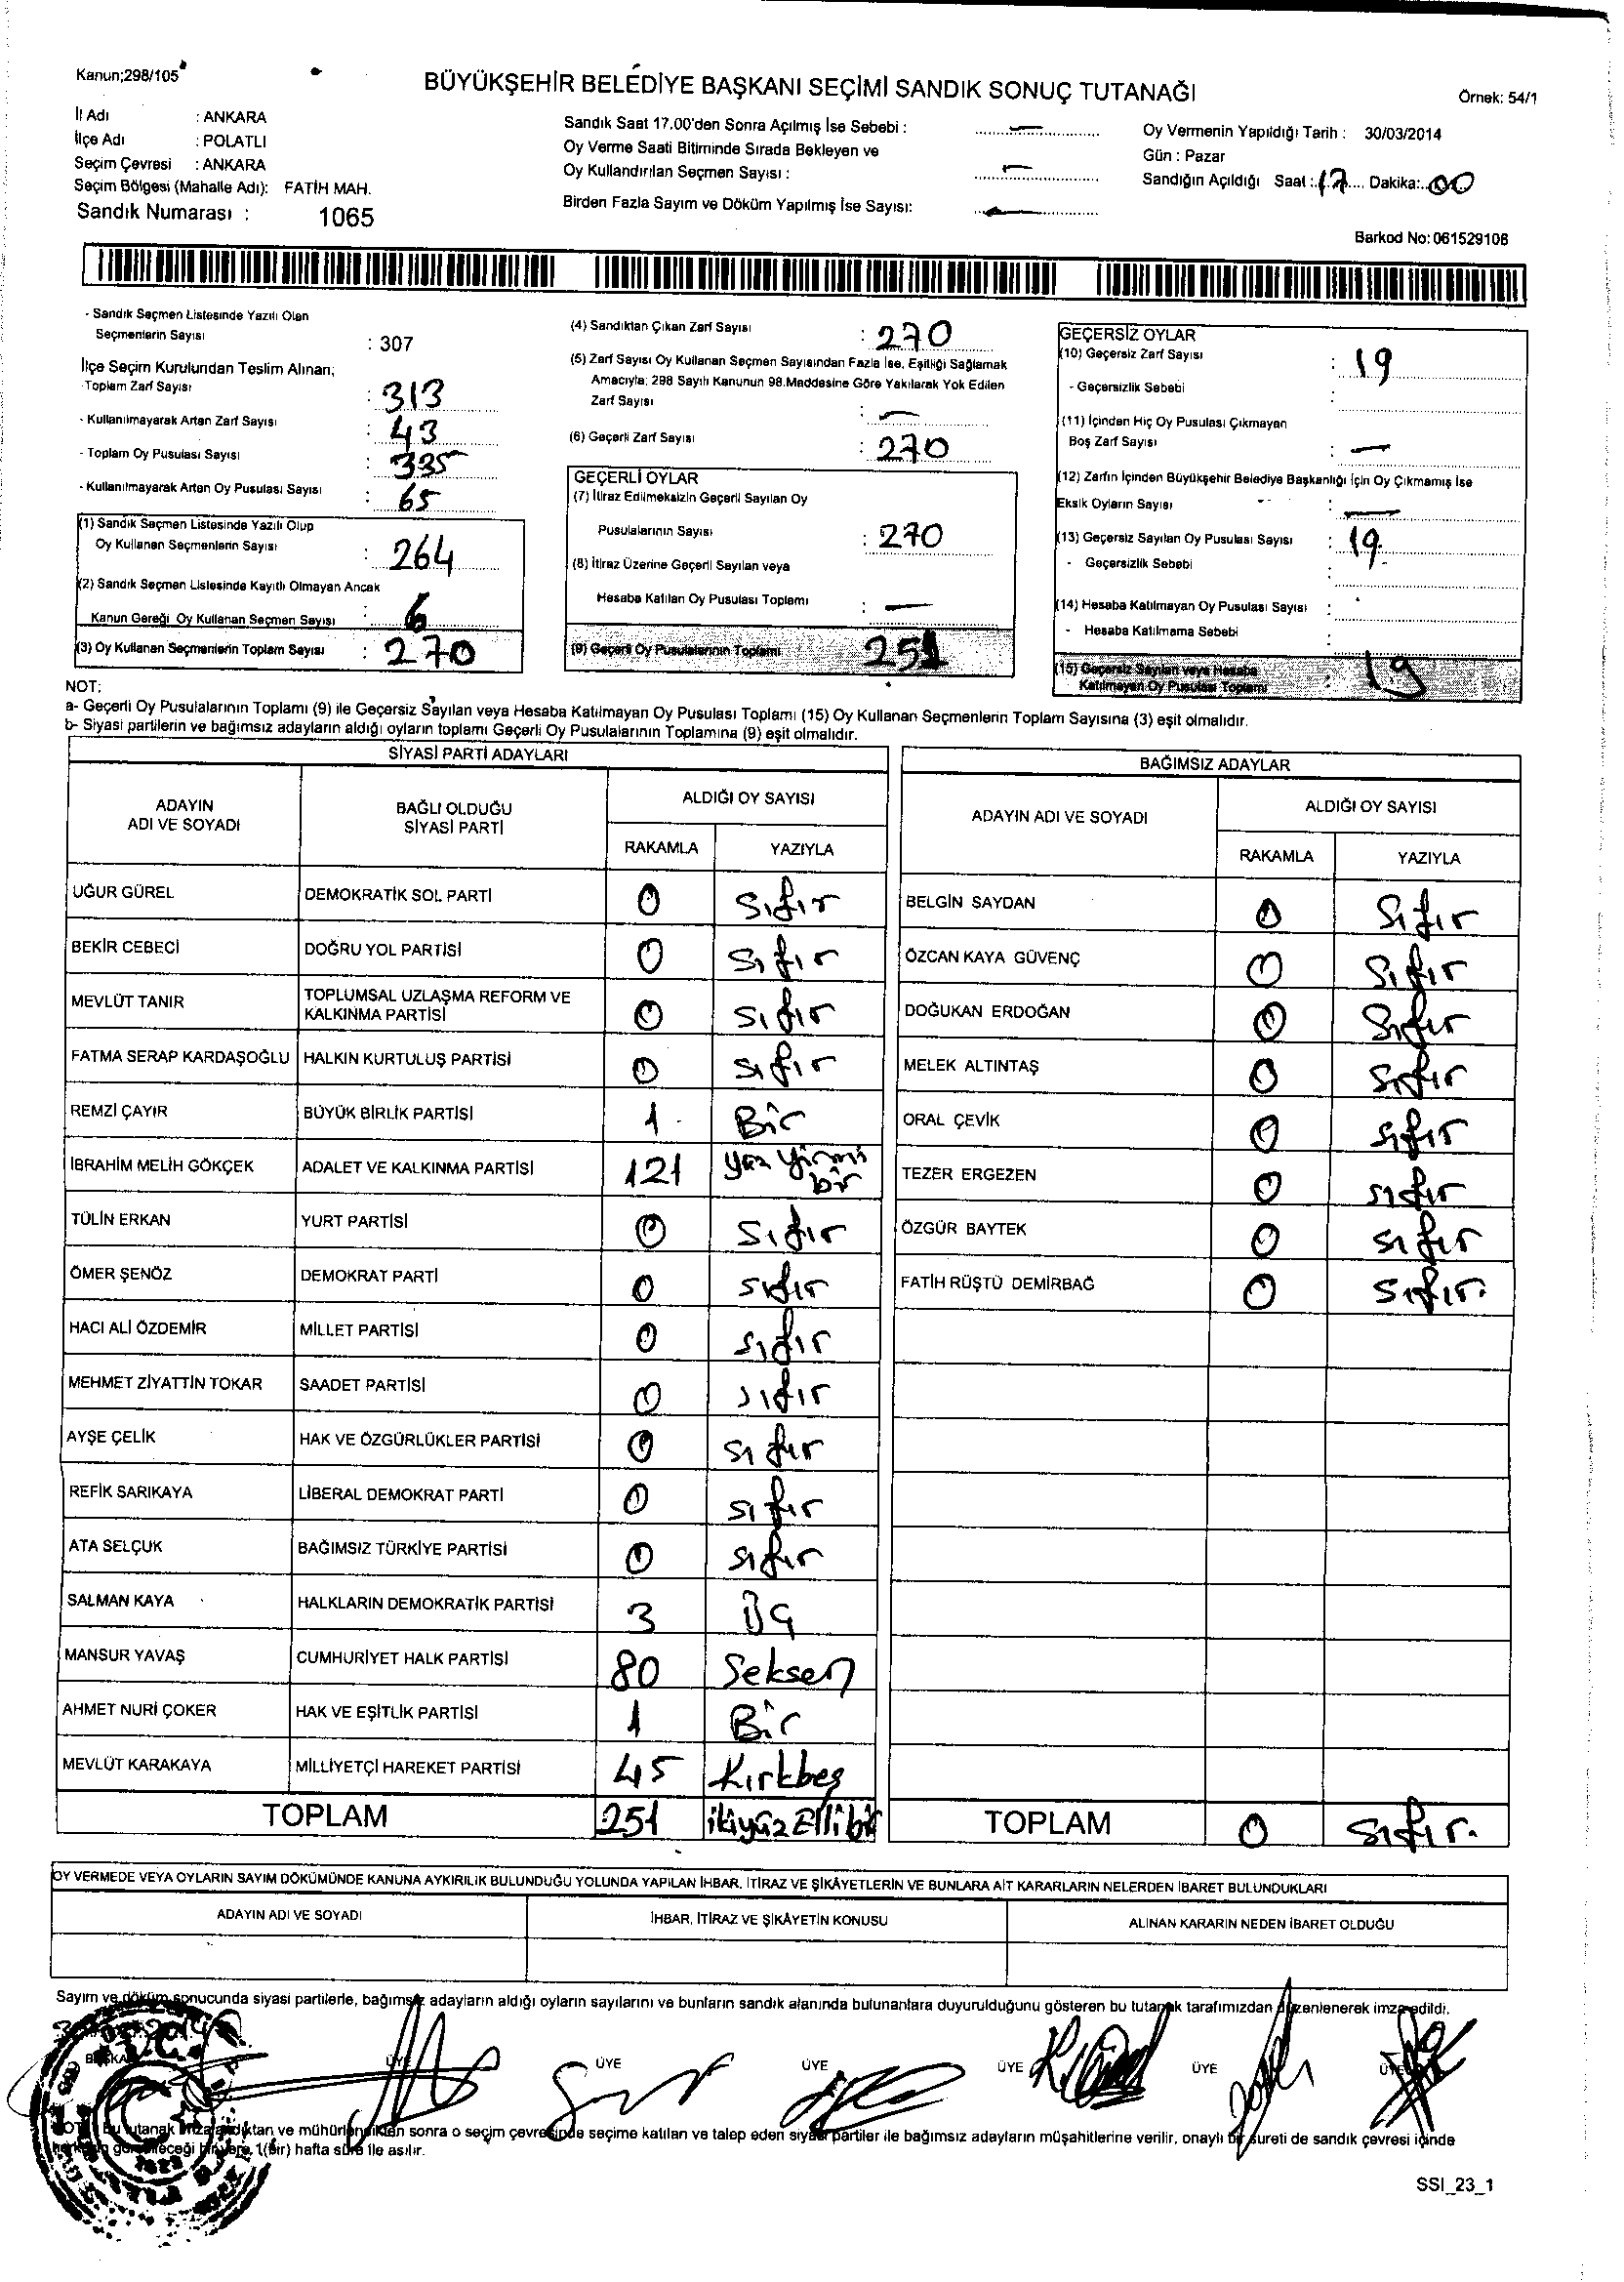 Kanun;298/105
BÜYÜKŞEHİR BELEDİYE BAŞKANI SEÇİMİ SANDIK SONUÇ TUTANAĞI
Örnek: 54/1
İl Adı : ANKARA
İlçe Adı : POLATLI
Seçim Çevresi : ANKARA
Seçim Bölgesi (Mahalle Adı): FATİH MAH.
Sandık Numarası : 1065
Sandık Saat 17.00'den Sonra Açılmış İse Sebebi : —
Oy Verme Saati Bitiminde Sırada Bekleyen ve
Oy Kullandırılan Seçmen Sayısı : —
Birden Fazla Sayım ve Döküm Yapılmış İse Sayısı: —
Oy Vermenin Yapıldığı Tarih : 30/03/2014
Gün : Pazar
Sandığın Açıldığı Saat : 17 Dakika: 00
Barkod No: 061529106
- Sandık Seçmen Listesinde Yazılı Olan
Seçmenlerin Sayısı : 307
İlçe Seçim Kurulundan Teslim Alınan;
- Toplam Zarf Sayısı : 313
- Kullanılmayarak Artan Zarf Sayısı : 43
- Toplam Oy Pusulası Sayısı : 335
- Kullanılmayarak Artan Oy Pusulası Sayısı : 65
(1) Sandık Seçmen Listesinde Yazılı Olup
Oy Kullanan Seçmenlerin Sayısı : 264
(2) Sandık Seçmen Listesinde Kayıtlı Olmayan Ancak
Kanun Gereği Oy Kullanan Seçmen Sayısı : 6
(3) Oy Kullanan Seçmenlerin Toplam Sayısı : 270
(4) Sandıktan Çıkan Zarf Sayısı : 270
(5) Zarf Sayısı Oy Kullanan Seçmen Sayısından Fazla İse, Eşitliği Sağlamak
Amacıyla; 298 Sayılı Kanunun 98.Maddesine Göre Yakılarak Yok Edilen
Zarf Sayısı : —
(6) Geçerli Zarf Sayısı : 270
GEÇERLİ OYLAR
(7) İtiraz Edilmeksizin Geçerli Sayılan Oy
Pusulalarının Sayısı : 270
(8) İtiraz Üzerine Geçerli Sayılan veya
Hesaba Katılan Oy Pusulası Toplamı : —
(9) Geçerli Oy Pusulalarının Toplamı : 251
GEÇERSİZ OYLAR
(10) Geçersiz Zarf Sayısı : 19
- Geçersizlik Sebebi :
(11) İçinden Hiç Oy Pusulası Çıkmayan
Boş Zarf Sayısı : —
(12) Zarfın İçinden Büyükşehir Belediye Başkanlığı İçin Oy Çıkmamış İse
Eksik Oyların Sayısı : —
(13) Geçersiz Sayılan Oy Pusulası Sayısı : 19
- Geçersizlik Sebebi :
(14) Hesaba Katılmayan Oy Pusulası Sayısı :
- Hesaba Katılmama Sebebi :
(15) Geçersiz Sayılan veya Hesaba
Katılmayan Oy Pusulası Toplamı : 19
NOT:
a- Geçerli Oy Pusulalarının Toplamı (9) ile Geçersiz Sayılan veya Hesaba Katılmayan Oy Pusulası Toplamı (15) Oy Kullanan Seçmenlerin Toplam Sayısına (3) eşit olmalıdır.
b- Siyasi partilerin ve bağımsız adayların aldığı oyların toplamı Geçerli Oy Pusulalarının Toplamına (9) eşit olmalıdır.
SİYASİ PARTİ ADAYLARI
ADAYIN ADI VE SOYADI BAĞLI OLDUĞU SİYASİ PARTİ ALDIĞI OY SAYISI
RAKAMLA YAZIYLA
UĞUR GÜREL DEMOKRATİK SOL PARTİ 0 Sıfır
BEKİR CEBECİ DOĞRU YOL PARTİSİ 0 Sıfır
MEVLÜT TANIR TOPLUMSAL UZLAŞMA REFORM VE KALKINMA PARTİSİ 0 Sıfır
FATMA SERAP KARDAŞOĞLU HALKIN KURTULUŞ PARTİSİ 0 Sıfır
REMZİ ÇAYIR BÜYÜK BİRLİK PARTİSİ 1 Bir
İBRAHİM MELİH GÖKÇEK ADALET VE KALKINMA PARTİSİ 121 yüz yirmi bir
TÜLİN ERKAN YURT PARTİSİ 0 Sıfır
ÖMER ŞENÖZ DEMOKRAT PARTİ 0 Sıfır
HACI ALİ ÖZDEMİR MİLLET PARTİSİ 0 Sıfır
MEHMET ZİYATTİN TOKAR SAADET PARTİSİ 0 Sıfır
AYŞE ÇELİK HAK VE ÖZGÜRLÜKLER PARTİSİ 0 Sıfır
REFİK SARIKAYA LİBERAL DEMOKRAT PARTİ 0 Sıfır
ATA SELÇUK BAĞIMSIZ TÜRKİYE PARTİSİ 0 Sıfır
SALMAN KAYA HALKLARIN DEMOKRATİK PARTİSİ 3 Üç
MANSUR YAVAŞ CUMHURİYET HALK PARTİSİ 80 Seksen
AHMET NURİ ÇOKER HAK VE EŞİTLİK PARTİSİ 1 Bir
MEVLÜT KARAKAYA MİLLİYETÇİ HAREKET PARTİSİ 45 Kırkbeş
TOPLAM 251 ikiyüz Ellibir
BAĞIMSIZ ADAYLAR
ADAYIN ADI VE SOYADI ALDIĞI OY SAYISI
RAKAMLA YAZIYLA
BELGİN SAYDAN 0 Sıfır
ÖZCAN KAYA GÜVENÇ 0 Sıfır
DOĞUKAN ERDOĞAN 0 Sıfır
MELEK ALTINTAŞ 0 Sıfır
ORAL ÇEVİK 0 Sıfır
TEZER ERGEZEN 0 Sıfır
ÖZGÜR BAYTEK 0 Sıfır
FATİH RÜŞTÜ DEMİRBAĞ 0 Sıfır.
TOPLAM 0 Sıfır.
OY VERMEDE VEYA OYLARIN SAYIM DÖKÜMÜNDE KANUNA AYKIRILIK BULUNDUĞU YOLUNDA YAPILAN İHBAR, İTİRAZ VE ŞİKÂYETLERİN VE BUNLARA AİT KARARLARIN NELERDEN İBARET BULUNDUKLARI
ADAYIN ADI VE SOYADI İHBAR, İTİRAZ VE ŞİKÂYETİN KONUSU ALINAN KARARIN NEDEN İBARET OLDUĞU
Sayım ve döküm sonucunda siyasi partilerle, bağımsız adayların aldığı oyların sayılarını ve bunların sandık alanında bulunanlara duyurulduğunu gösteren bu tutanak tarafımızdan düzenlenerek imza edildi.
BAŞKAN ÜYE ÜYE ÜYE ÜYE ÜYE ÜYE
NOT: Bu tutanak imzalandıktan ve mühürlendikten sonra o seçim çevresinde seçime katılan ve talep eden siyasi partiler ile bağımsız adayların müşahitlerine verilir, onaylı bir sureti de sandık çevresi içinde
herkesin görebileceği bir yere, 1(bir) hafta süre ile asılır.
SSI_23_1